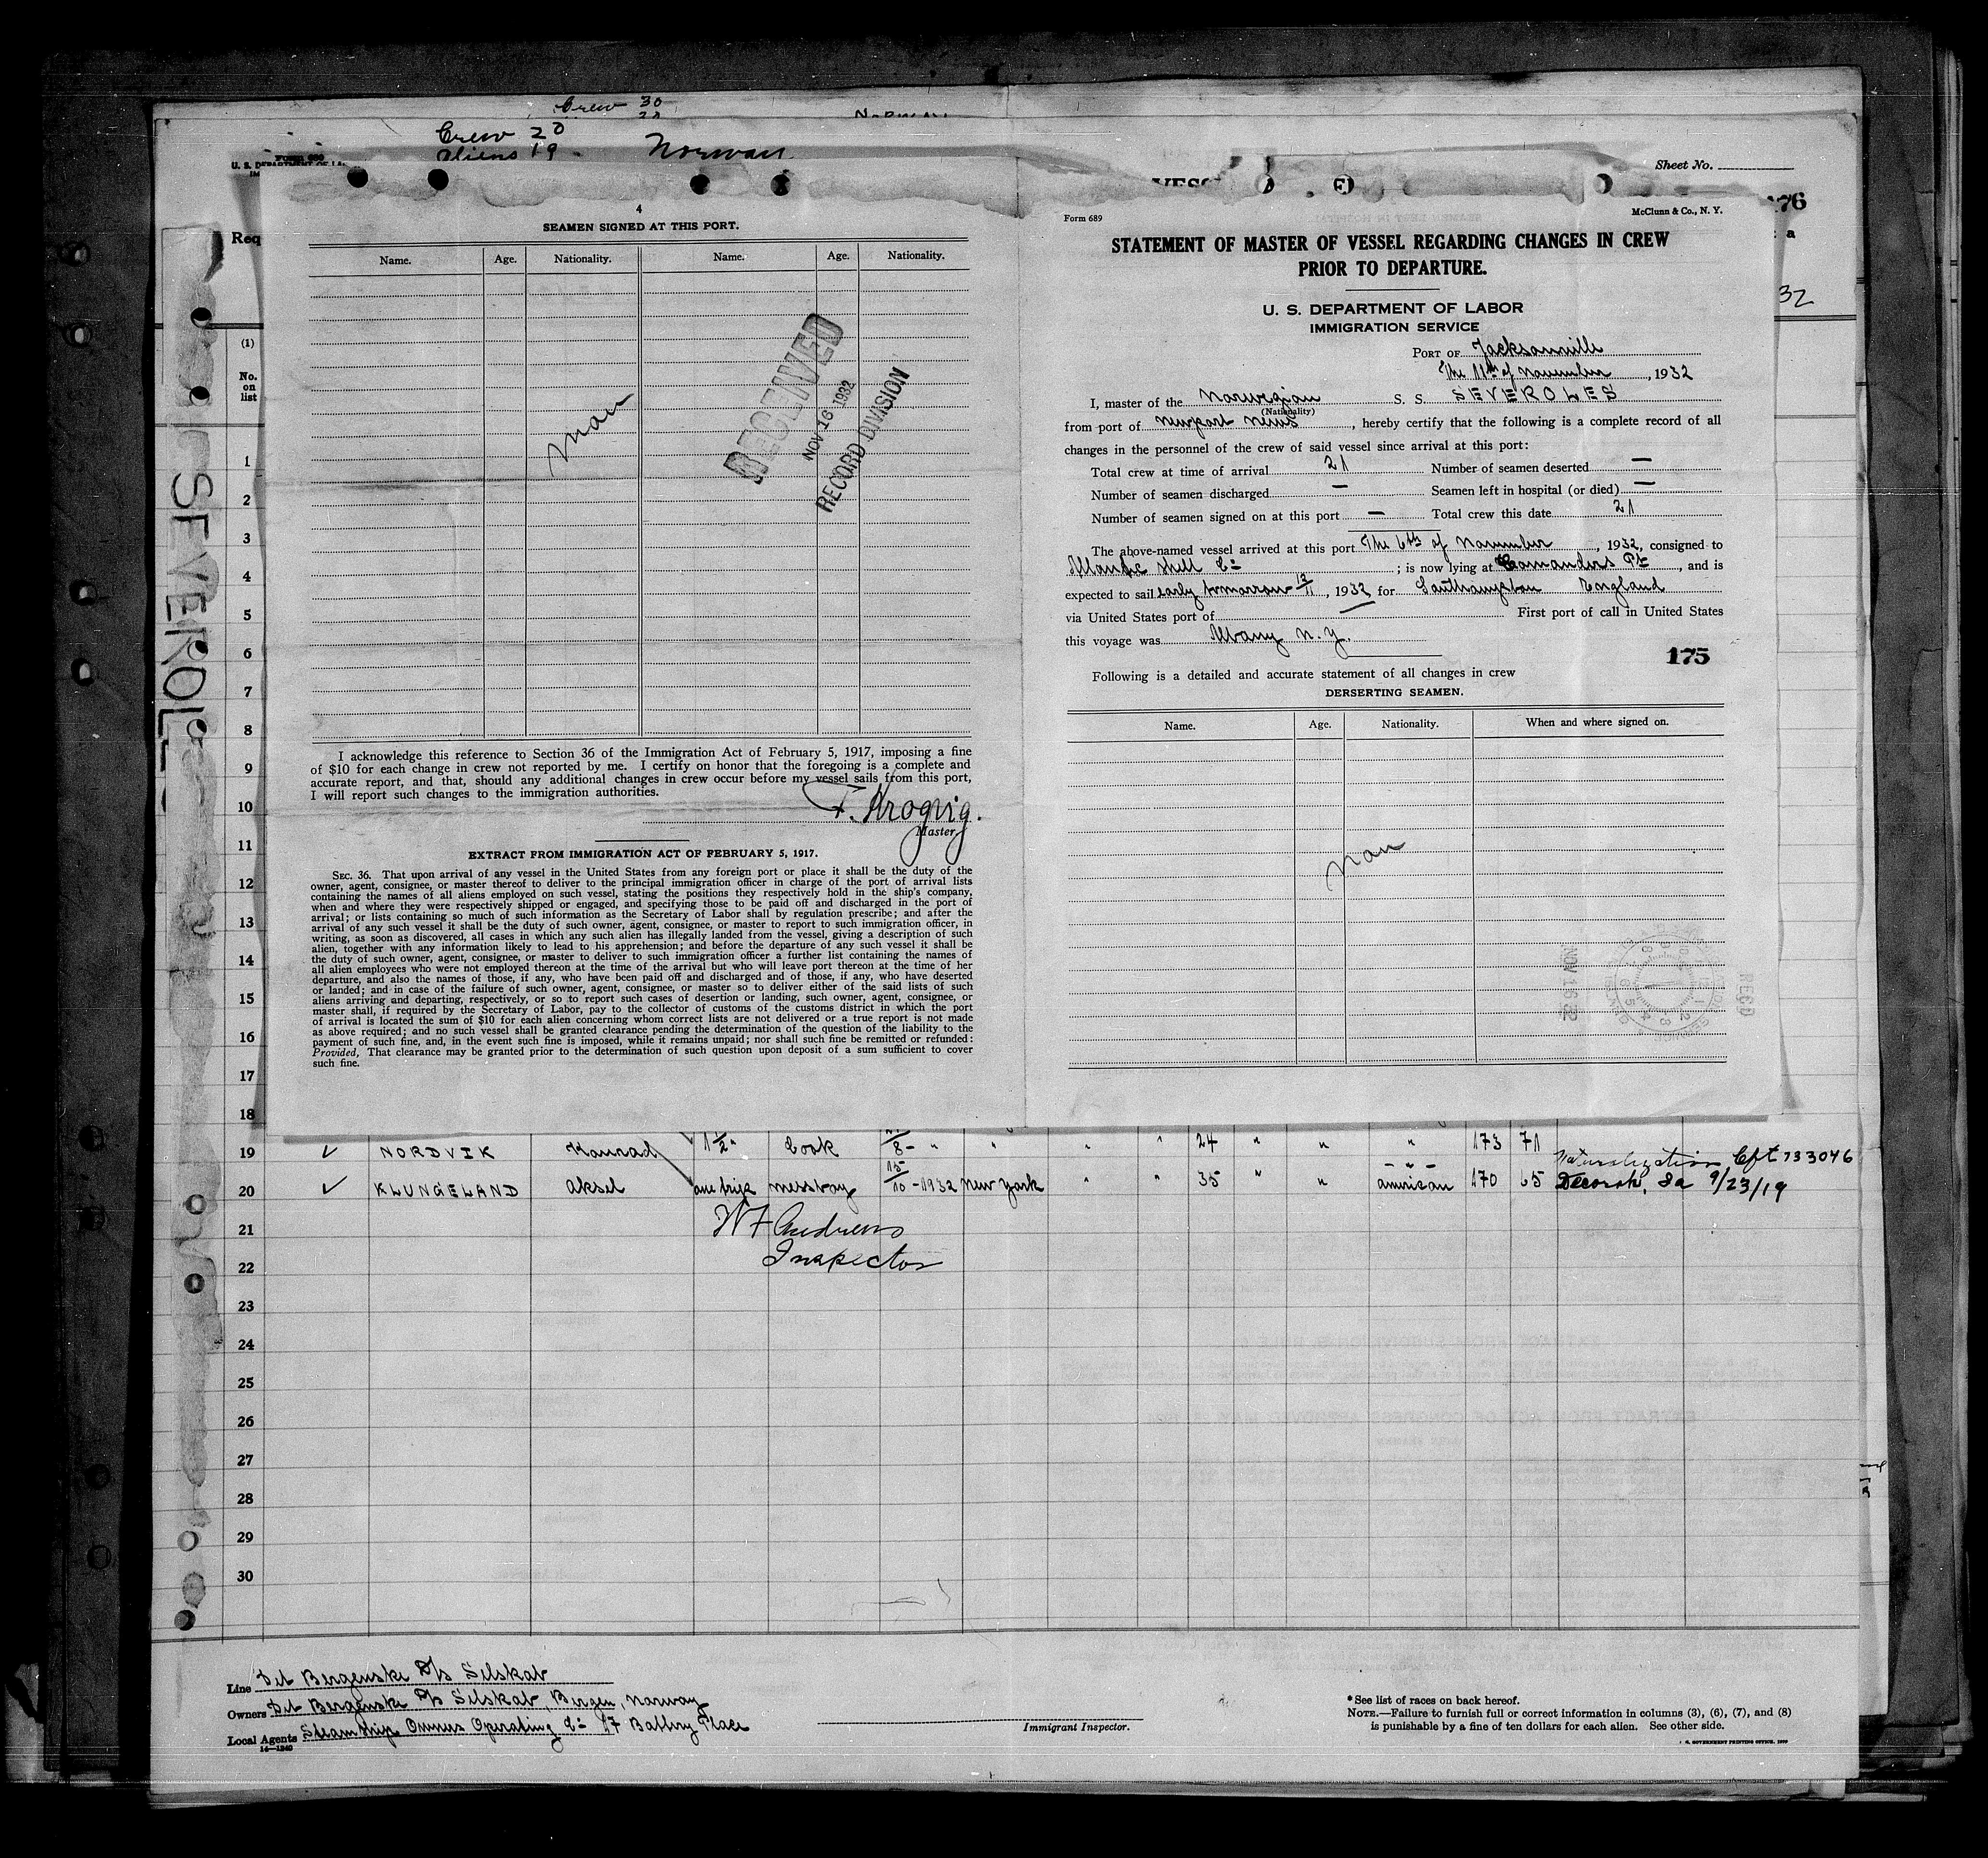 Crew 30
Crew 20
Aliens 19
U. S. DEPARTMENT OF LA
Sheet No.
176
Req
a
32
(1)
No. on list
SEVEROL
4
SEAMEN SIGNED AT THIS PORT.
Name. Age. Nationality. Name. Age. Nationality.
RECEIVED
NOV 16 1932
RECORD DIVISION
I acknowledge this reference to Section 36 of the Immigration Act of February 5, 1917, imposing a fine
of $10 for each change in crew not reported by me. I certify on honor that the foregoing is a complete and
accurate report, and that, should any additional changes in crew occur before my vessel sails from this port,
I will report such changes to the immigration authorities.
F. Krogvig.
Master
EXTRACT FROM IMMIGRATION ACT OF FEBRUARY 5, 1917.
SEC. 36. That upon arrival of any vessel in the United States from any foreign port or place it shall be the duty of the
owner, agent, consignee, or master thereof to deliver to the principal immigration officer in charge of the port of arrival lists
containing the names of all aliens employed on such vessel, stating the positions they respectively hold in the ship's company,
when and where they were respectively shipped or engaged, and specifying those to be paid off and discharged in the port of
arrival; or lists containing so much of such information as the Secretary of Labor shall by regulation prescribe; and after the
arrival of any such vessel it shall be the duty of such owner, agent, consignee, or master to report to such immigration officer, in
writing, as soon as discovered, all cases in which any such alien has illegally landed from the vessel, giving a description of such
alien, together with any information likely to lead to his apprehension; and before the departure of any such vessel it shall be
the duty of such owner, agent, consignee, or master to deliver to such immigration officer a further list containing the names of
all alien employees who were not employed thereon at the time of the arrival but who will leave port thereon at the time of her
departure, and also the names of those, if any, who have been paid off and discharged and of those, if any, who have deserted
or landed; and in case of the failure of such owner, agent, consignee, or master so to deliver either of the said lists of such
aliens arriving and departing, respectively, or so to report such cases of desertion or landing, such owner, agent, consignee, or
master shall, if required by the Secretary of Labor, pay to the collector of customs of the customs district in which the port
of arrival is located the sum of $10 for each alien concerning whom correct lists are not delivered or a true report is not made
as above required; and no such vessel shall be granted clearance pending the determination of the question of the liability to the
payment of such fine, and, in the event such fine is imposed, while it remains unpaid; nor shall such fine be remitted or refunded:
Provided, That clearance may be granted prior to the determination of such question upon deposit of a sum sufficient to cover
such fine.
Form 689
McClunn & Co., N. Y.
STATEMENT OF MASTER OF VESSEL REGARDING CHANGES IN CREW
PRIOR TO DEPARTURE.
U. S. DEPARTMENT OF LABOR
IMMIGRATION SERVICE
PORT OF Jacksonville
The 11th of November, 1932
I, master of the Norwegian S. S. SEVEROLES
(Nationality)
from port of Newport News, hereby certify that the following is a complete record of all
changes in the personnel of the crew of said vessel since arrival at this port:
Total crew at time of arrival 21 Number of seamen deserted —
Number of seamen discharged — Seamen left in hospital (or died) —
Number of seamen signed on at this port — Total crew this date 21
The above-named vessel arrived at this port The 6th of November, 1932, consigned to
Atlantic Shell Co ; is now lying at Comanders Pt, and is
expected to sail early tomorrow 12/11, 1932 for Southampton England
via United States port of — First port of call in United States
this voyage was Albany N. Y.
175
Following is a detailed and accurate statement of all changes in crew
DERSERTING SEAMEN.
Name. Age. Nationality. When and where signed on.
NOV 16 32
REC'D
1
2
3
4
5
6
7
8
9
10
11
12
13
14
15
16
17
18
19 ✓ NORDVIK Konrad 1½ " Cook 8 - " " " " 24 " " " 173 71
20 ✓ KLUNGELAND Aksel one trip messboy 15/10 - 1932 New York " " 35 " " American 170 65 Naturalization Cft 733046
Decorah, Ia 9/23/19
21 W F Andrews
22 Inspector
23
24
25
26
27
28
29
30
Line Det Bergenske D/s Selskab
Owners Det Bergenske D/s Selskab, Bergen, Norway
Local Agents Steamship Owners Operating Co 17 Battery Place
14—1240
Immigrant Inspector.
* See list of races on back hereof.
NOTE.—Failure to furnish full or correct information in columns (3), (6), (7), and (8)
is punishable by a fine of ten dollars for each alien. See other side.
GOVERNMENT PRINTING OFFICE